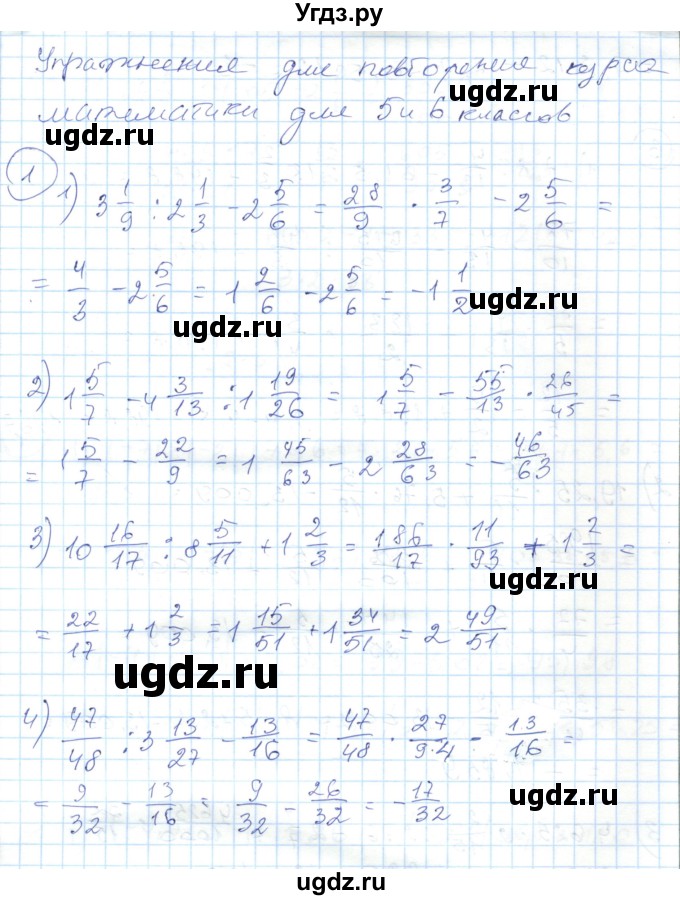 Угдз.ру
Упражнения для повторения курса
математики для 5 и 6 классов
ugdz.ru ugdz.ru
1
1) 3 1/9 : 2 1/3 - 2 5/6 = 28/9 · 3/7 - 2 5/6 =
ugdz.ru
= 4/3 - 2 5/6 = 1 2/6 - 2 5/6 = -1 1/2
ugdz.ru ugdz.ru
2) 1 5/7 - 4 3/13 : 1 19/26 = 1 5/7 - 55/13 · 26/45 =
ugdz.ru
= 1 5/7 - 22/9 = 1 45/63 - 2 28/63 = - 46/63
ugdz.ru
3) 10 16/17 : 8 5/11 + 1 2/3 = 186/17 · 11/93 + 1 2/3 =
ugdz.ru
= 22/17 + 1 2/3 = 1 15/51 + 1 34/51 = 2 49/51
ugdz.ru
4) 47/48 : 3 13/27 - 13/16 = 47/48 · 27/9·4 - 13/16 =
ugdz.ru
= 9/32 - 13/16 = 9/32 - 26/32 = - 17/32
ugdz.ru
ugdz.ru